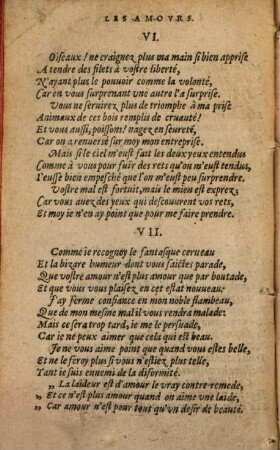 LES AMOVRS.
VI.
Oiseaux! ne craignez plus ma main si bien apprise
A tendre des filets à vostre liberté,
N'ayant plus le pouuoir comme la volonté,
Car en vous surprenant une autre l'a surprise.
Vous ne seruirez plus de triomphe à ma prise
Animaux de ces bois remplis de cruauté!
Et vous aussi, poissons! nagez en seureté,
Car on a renuersé sur moy mon entreprise.
Mais si le ciel m'eust fait les deux yeux entendus
Comme à vous pour fuir des rets qu'on m'eust tendus,
I'eusse bien empesché que l'on m'eust peu surprendre.
Vostre mal est fortuit, mais le mien est exprez;
Car vous auez des yeux qui descouurent vos rets,
Et moy ie n'en ay point que pour me faire prendre.
VII.
Comme ie recognoy le fantasque cerueau
Et la bizare humeur dont vous faictes parade,
Que vostre amour n'est plus amour que par boutade,
Et que vous vous plaisez en cet estat nouueau:
J'ay ferme confiance en mon noble flambeau,
Que de mon mesme mal il vous rendra malade:
Mais ce sera trop tard, ie me le persuade,
Car ie ne peux aimer que cela qui est beau.
Je ne vous aime point que quand vous estes belle,
Et ne le feroy plus si vous n'estiez plus telle,
Tant ie suis ennemi de la diformité.
„ La laideur est d'amour le vray contre-remede,
„ Et ce n'est plus amour quand on aime vne laide,
„ Car amour n'est pour tout qu'un desir de beauté.